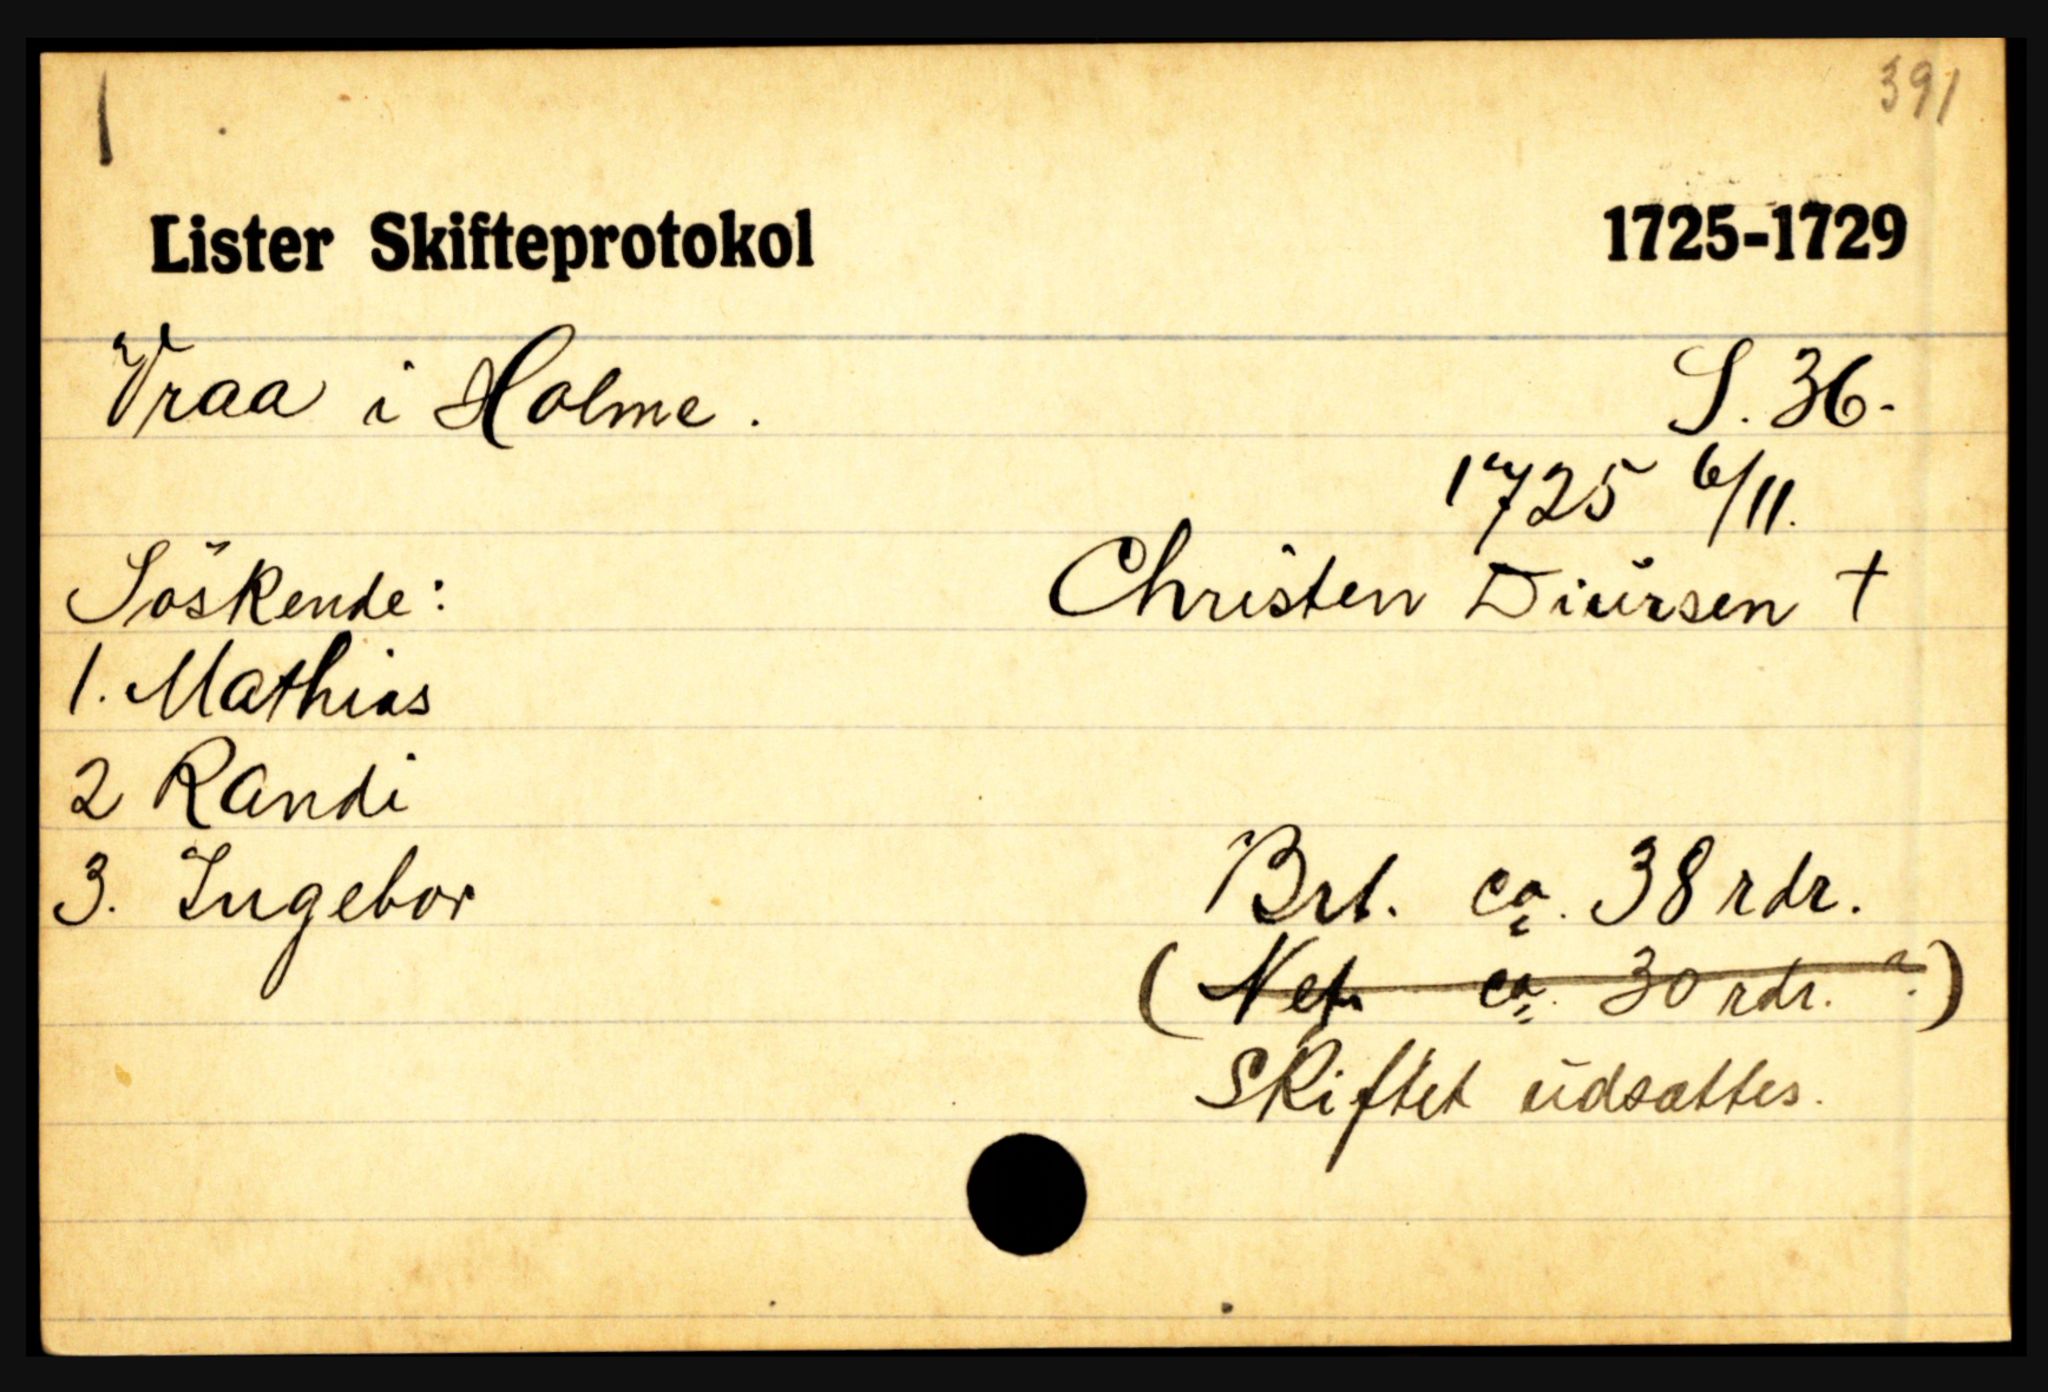 391
Lister Skifteprotokol 1725-1729
Vraa i Holme. S. 36.
1725 6/11.
Söskende: Christen Diursen †
1. Mathias
2 Randi
3. Ingebor Brt. ca. 38 rdr.
(Net. ca. 30 rdr. ?)
Skiftet udsættes.